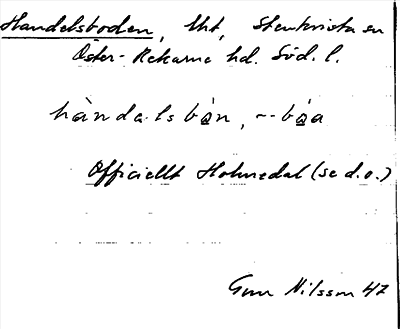 Handelsboden, lht, Stenkvista sn
Öster-Rekarne hd. Söd. l.
hàndalsbo̲n, ~bo̲a
Officiellt Holmedal (se d.o.)
Gun Nilsson 47